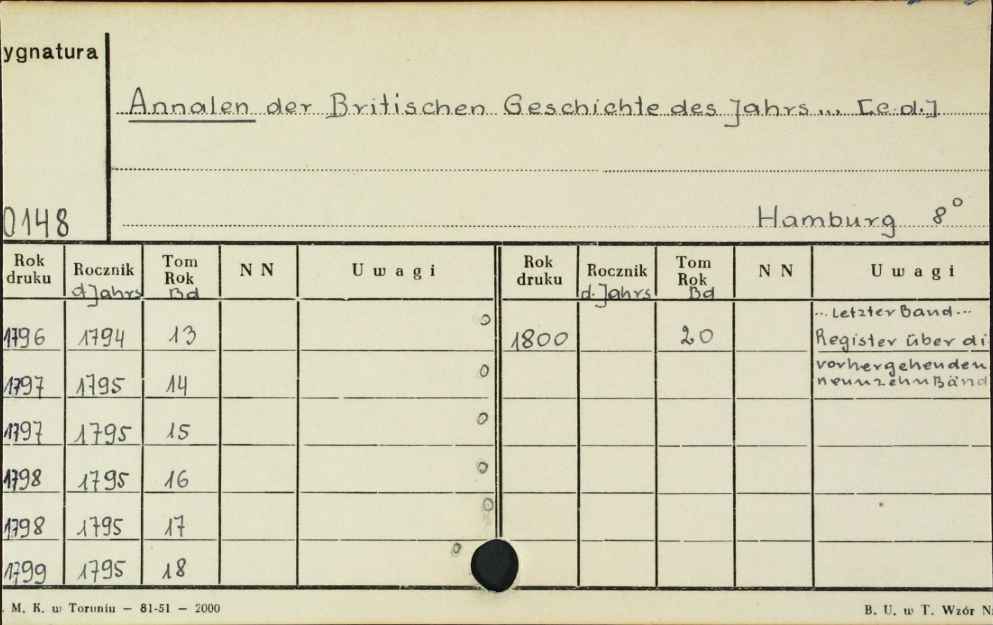 ygnatura
Annalen der Britischen Geschichte des Jahrs... [c.d.]
0148 Hamburg 8°
Rok druku Rocznik d Jahrs Tom Rok Bd N N Uwagi Rok druku Rocznik d. Jahrs Tom Rok Bd N N Uwagi
1796 1794 13 o 1800 20 ... Letzter Band ... Register über di
1797 1795 14 o vorhergehenden neunzehn Bänd
1797 1795 15 o
1798 1795 16 o
1798 1795 17 o
1799 1795 18 o
. M. K. w Toruniu — 81-51 — 2000 B. U. w T. Wzór N